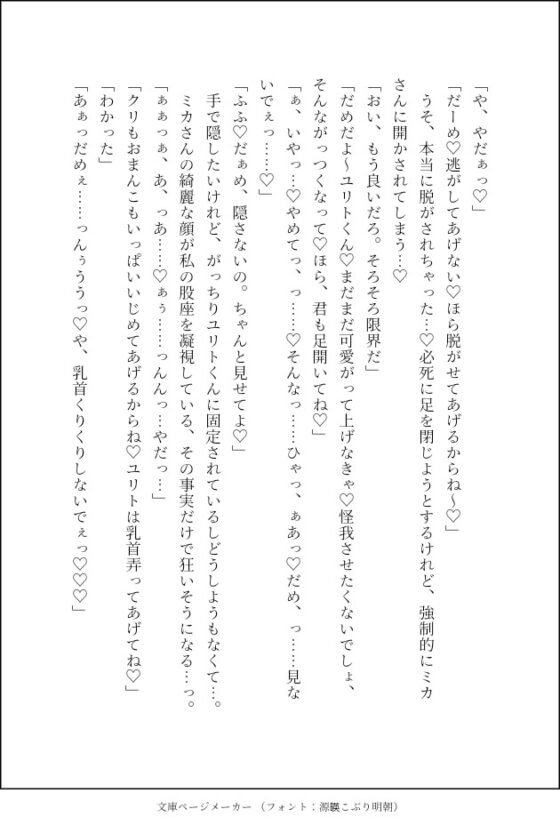 「や、やだぁっ♡」
「だーめ♡逃がしてあげない♡ほら脱がせてあげるからね〜♡」
うそ、本当に脱がされちゃった…♡必死に足を閉じようとするけれど、強制的にミカ
さんに開かされてしまう…♡
「おい、もう良いだろ。そろそろ限界だ」
「だめだよ〜ユリトくん♡まだまだ可愛がって上げなきゃ♡怪我させたくないでしょ、
そんながっつくなって♡ほら、君も足開いてね♡」
「ぁ、いやっ…♡やめてっ、っ……♡そんなっ……ひゃっ、ぁあっ♡だめ、っ……見な
いでぇっ……♡」
「ふふ♡だぁめ、隠さないの。ちゃんと見せてよ♡」
手で隠したいけれど、がっちりユリトくんに固定されているしどうしようもなくて…。
ミカさんの綺麗な顔が私の股座を凝視している、その事実だけで狂いそうになる…っ。
「ぁぁっぁ、あ、っあ……♡ぁぅ……っんんっ…やだっ…」
「クリもおまんこもいっぱいいじめてあげるからね♡ユリトは乳首弄ってあげてね♡」
「わかった」
「あぁっだめぇ……っんぅううっ♡や、乳首くりくりしないでぇっ♡♡♡」
文庫ページメーカー（フォント：源暎こぶり明朝）